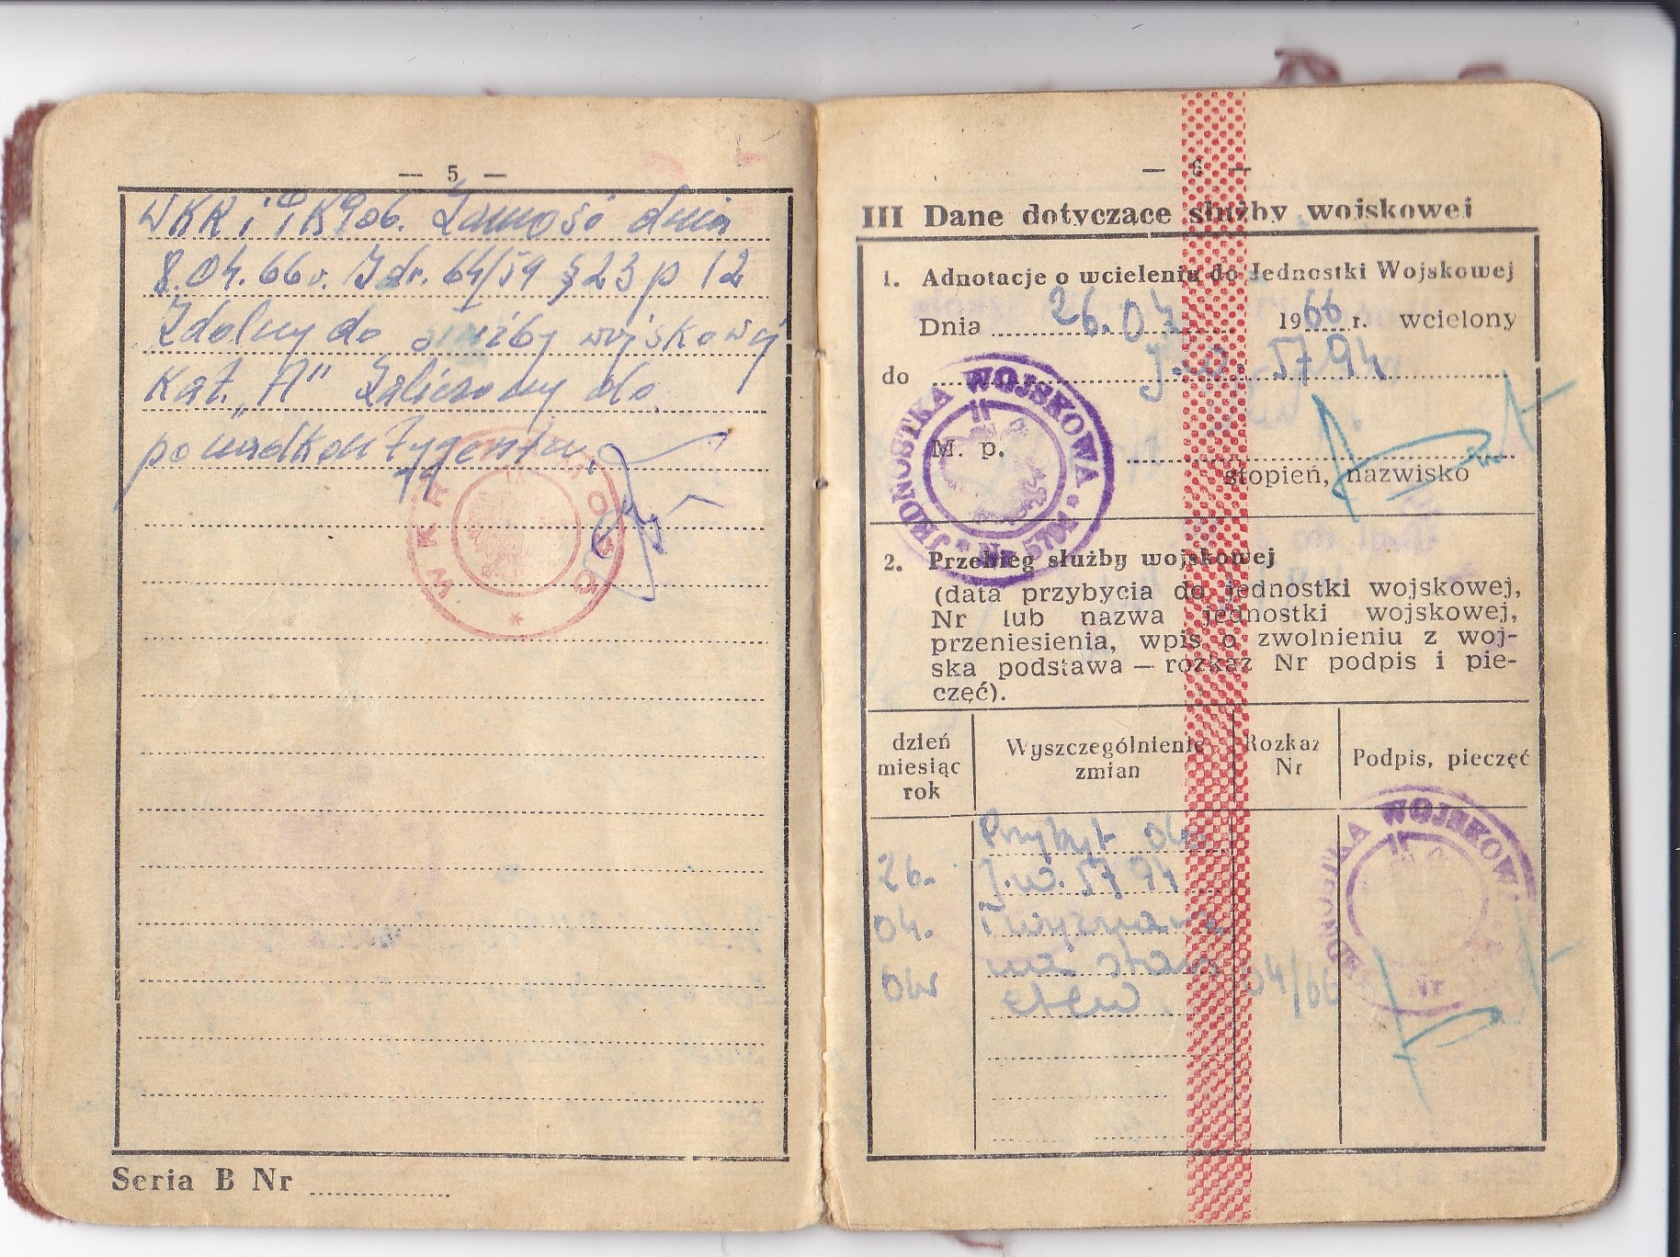 — 5 —
WKR i
Zamość dnia
8.04.66r. Zdr. 64/59 § 23 p 12
Zdolny do służby wojskowej
Kat. „A" Zaliczony do
ponadkontygentu.
WKR
Seria B Nr
— 6 —
III Dane dotyczące służby wojskowej
1. Adnotacje o wcieleniu do Jednostki Wojskowej
Dnia 26.04 1966 r. wcielony
do J.W. 5794
JEDNOSTKA WOJSKOWA * Nr 5794 *
M. p.
stopień, nazwisko
2. Przebieg służby wojskowej
(data przybycia do jednostki wojskowej,
Nr lub nazwa jednostki wojskowej,
przeniesienia, wpis o zwolnieniu z woj-
ska podstawa — rozkaz Nr podpis i pie-
częć).
dzień miesiąc rok
Wyszczególnienie zmian
Rozkaz Nr
Podpis, pieczęć
Przybył do
26. J.W. 5794
04.
na stan
66 04/66
JEDNOSTKA WOJSKOWA Nr